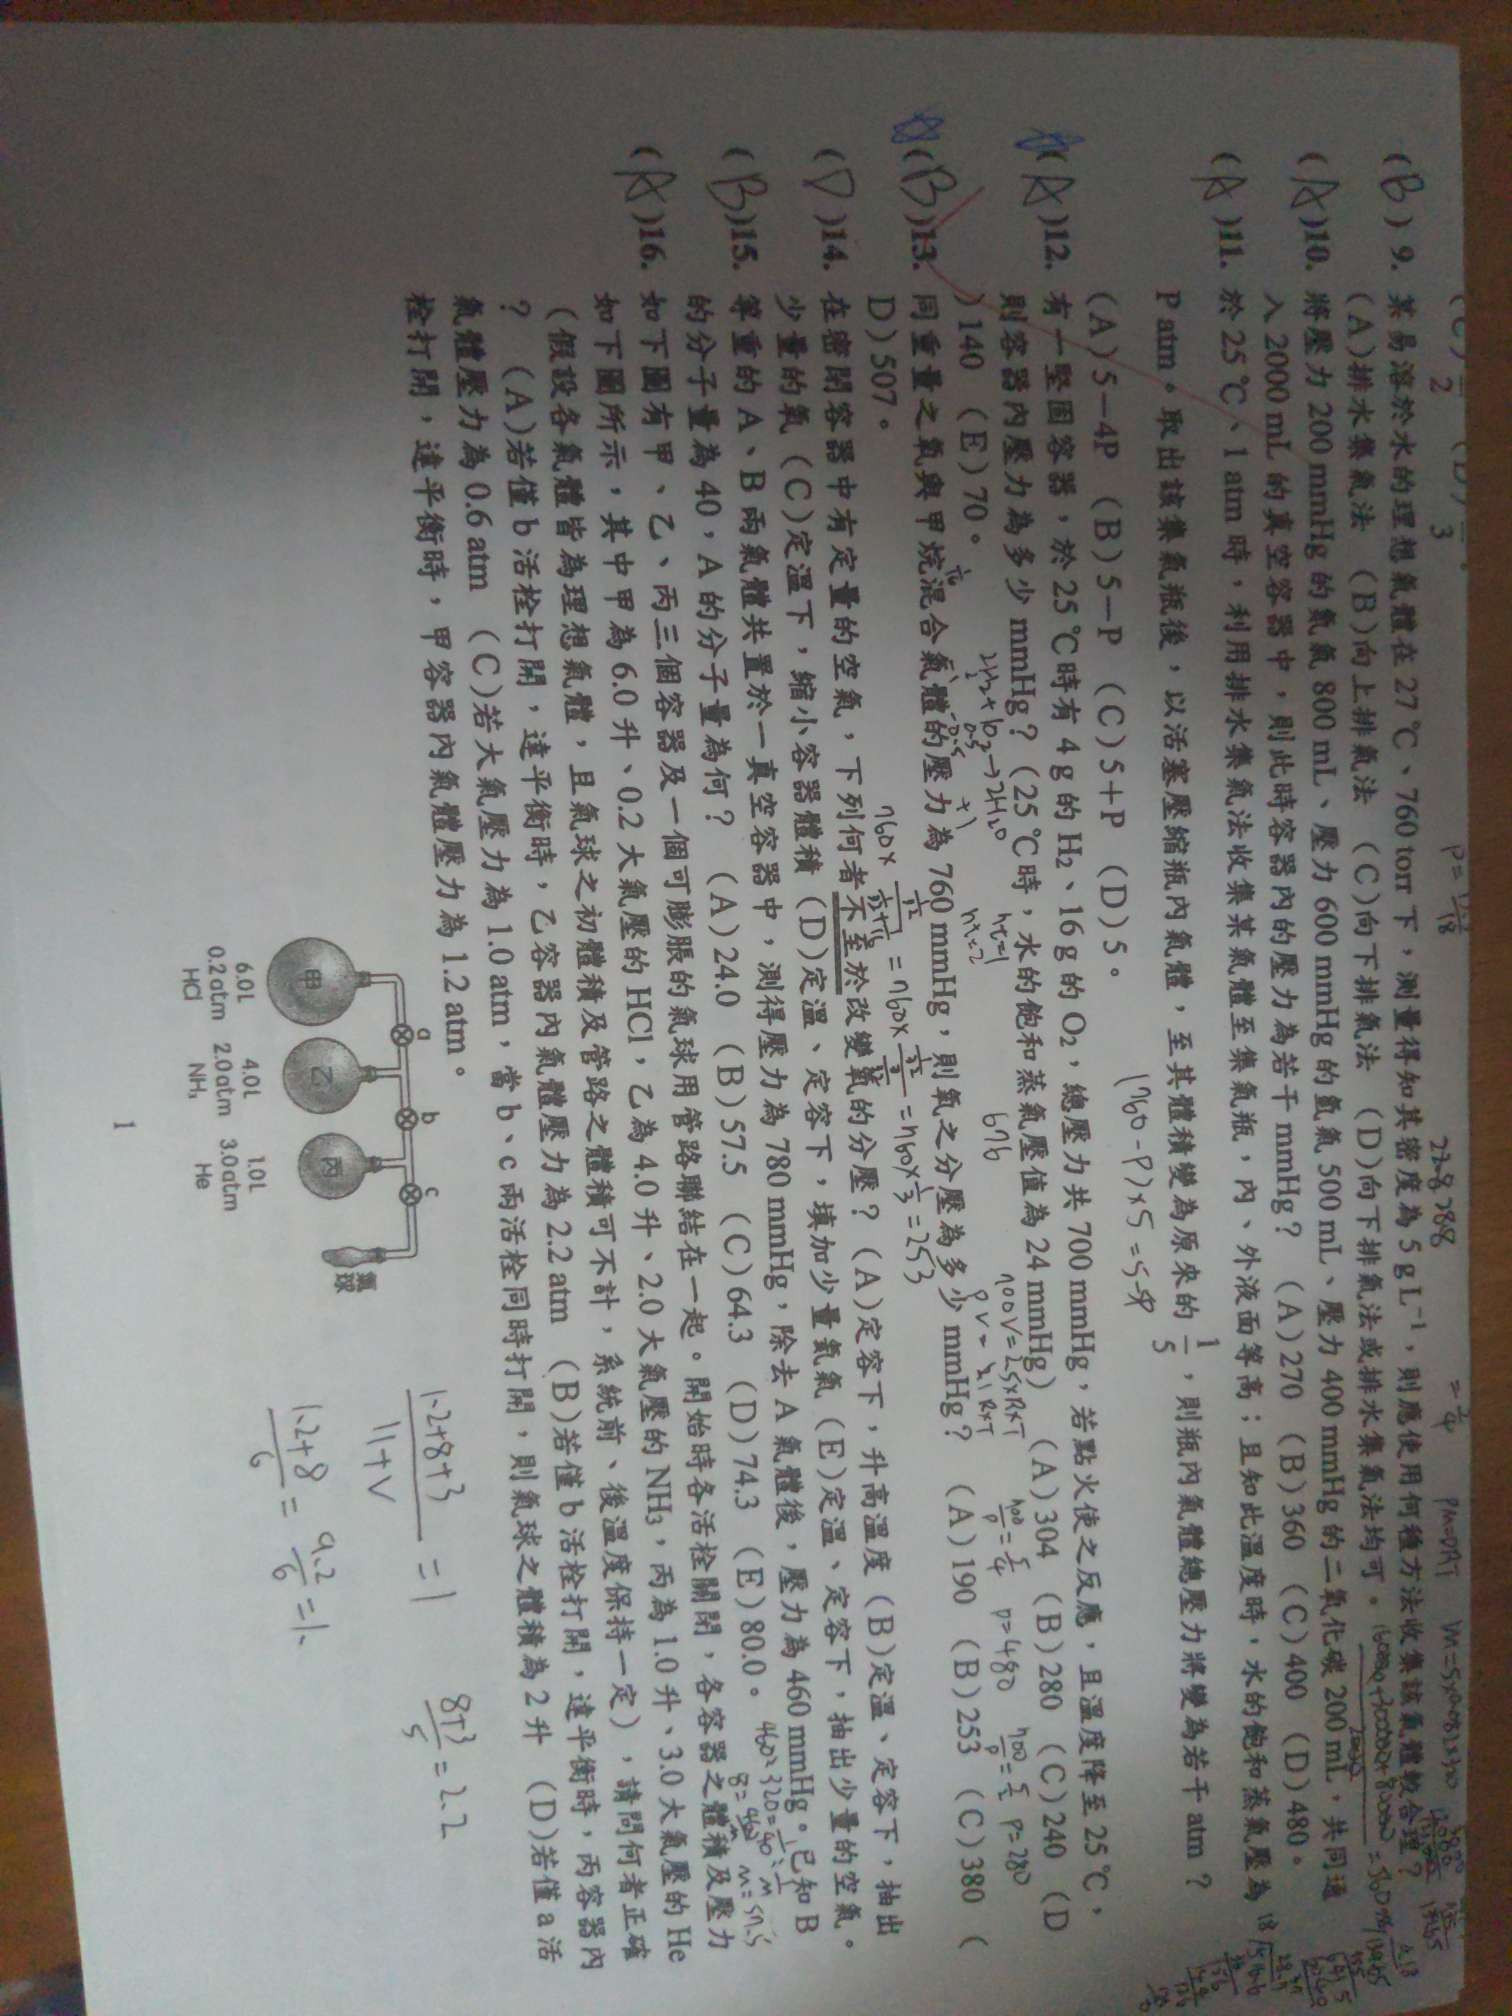 (C) 2 (D) 3。
(B) 9. 某易溶於水的理想氣體在27℃、760 torr下，測量得知其密度為5 g L⁻¹，則應使用何種方法收集該氣體較合理？
(A)排水集氣法 (B)向上排氣法 (C)向下排氣法 (D)向下排氣法或排水集氣法均可。
(A)10. 將壓力200 mmHg的氮氣800 mL、壓力600 mmHg的氫氣500 mL、壓力400 mmHg的二氧化碳200 mL，共同通
入2000 mL的真空容器中，則此時容器內的壓力為若干mmHg？ (A)270 (B)360 (C)400 (D)480。
(A)11. 於25℃、1 atm時，利用排水集氣法收集某氣體至集氣瓶，內、外液面等高；且知此溫度時，水的飽和蒸氣壓為
P atm。取出該集氣瓶後，以活塞壓縮瓶內氣體，至其體積變為原來的1/5，則瓶內氣體總壓力將變為若干atm？
(760-P)×5=5-4P
(A)5－4P (B)5－P (C)5＋P (D)5。
(A)12. 有一堅固容器，於25℃時有4 g的H₂、16 g的O₂，總壓力共700 mmHg，若點火使之反應，且溫度降至25℃，
則容器內壓力為多少mmHg？(25℃時，水的飽和蒸氣壓值為24 mmHg) (A)304 (B)280 (C)240 (D
)140 (E)70。
2H₂+1O₂→2H₂O
676
700V=2.5×R×T
p=480
p=280
(B)13. 同重量之氧與甲烷混合氣體的壓力為760 mmHg，則氧之分壓為多少mmHg？ (A)190 (B)253 (C)380 (
D)507。
=760×1/3=253
(D)14. 在密閉容器中有定量的空氣，下列何者不至於改變氧的分壓？(A)定容下，升高溫度 (B)定溫、定容下，抽出
少量的氧 (C)定溫下，縮小容器體積 (D)定溫、定容下，填加少量氦氣 (E)定溫、定容下，抽出少量的空氣。
(B)15. 等重的A、B兩氣體共置於一真空容器中，測得壓力為780 mmHg，除去A氣體後，壓力為460 mmHg。已知B
的分子量為40，A的分子量為何？ (A)24.0 (B)57.5 (C)64.3 (D)74.3 (E)80.0。
m=57.5
(A)16. 如下圖有甲、乙、丙三個容器及一個可膨脹的氣球用管路聯結在一起。開始時各活栓關閉，各容器之體積及壓力
如下圖所示，其中甲為6.0升、0.2大氣壓的HCl，乙為4.0升、2.0大氣壓的NH₃，丙為1.0升、3.0大氣壓的He
(假設各氣體皆為理想氣體，且氣球之初體積及管路之體積可不計，系統前、後溫度保持一定)，請問何者正確
？ (A)若僅b活栓打開，達平衡時，乙容器內氣體壓力為2.2 atm (B)若僅b活栓打開，達平衡時，丙容器內
氣體壓力為0.6 atm (C)若大氣壓力為1.0 atm，當b、c兩活栓同時打開，則氣球之體積為2升 (D)若僅a活
栓打開，達平衡時，甲容器內氣體壓力為1.2 atm。
a b c
甲 乙 丙 氣球
6.0L 4.0L 1.0L
0.2atm 2.0atm 3.0atm
HCl NH₃ He
(1.2+8+3)/(11+V)=1
(8+3)/5=2.2
(1.2+8)/6=9.2/6=1.
1